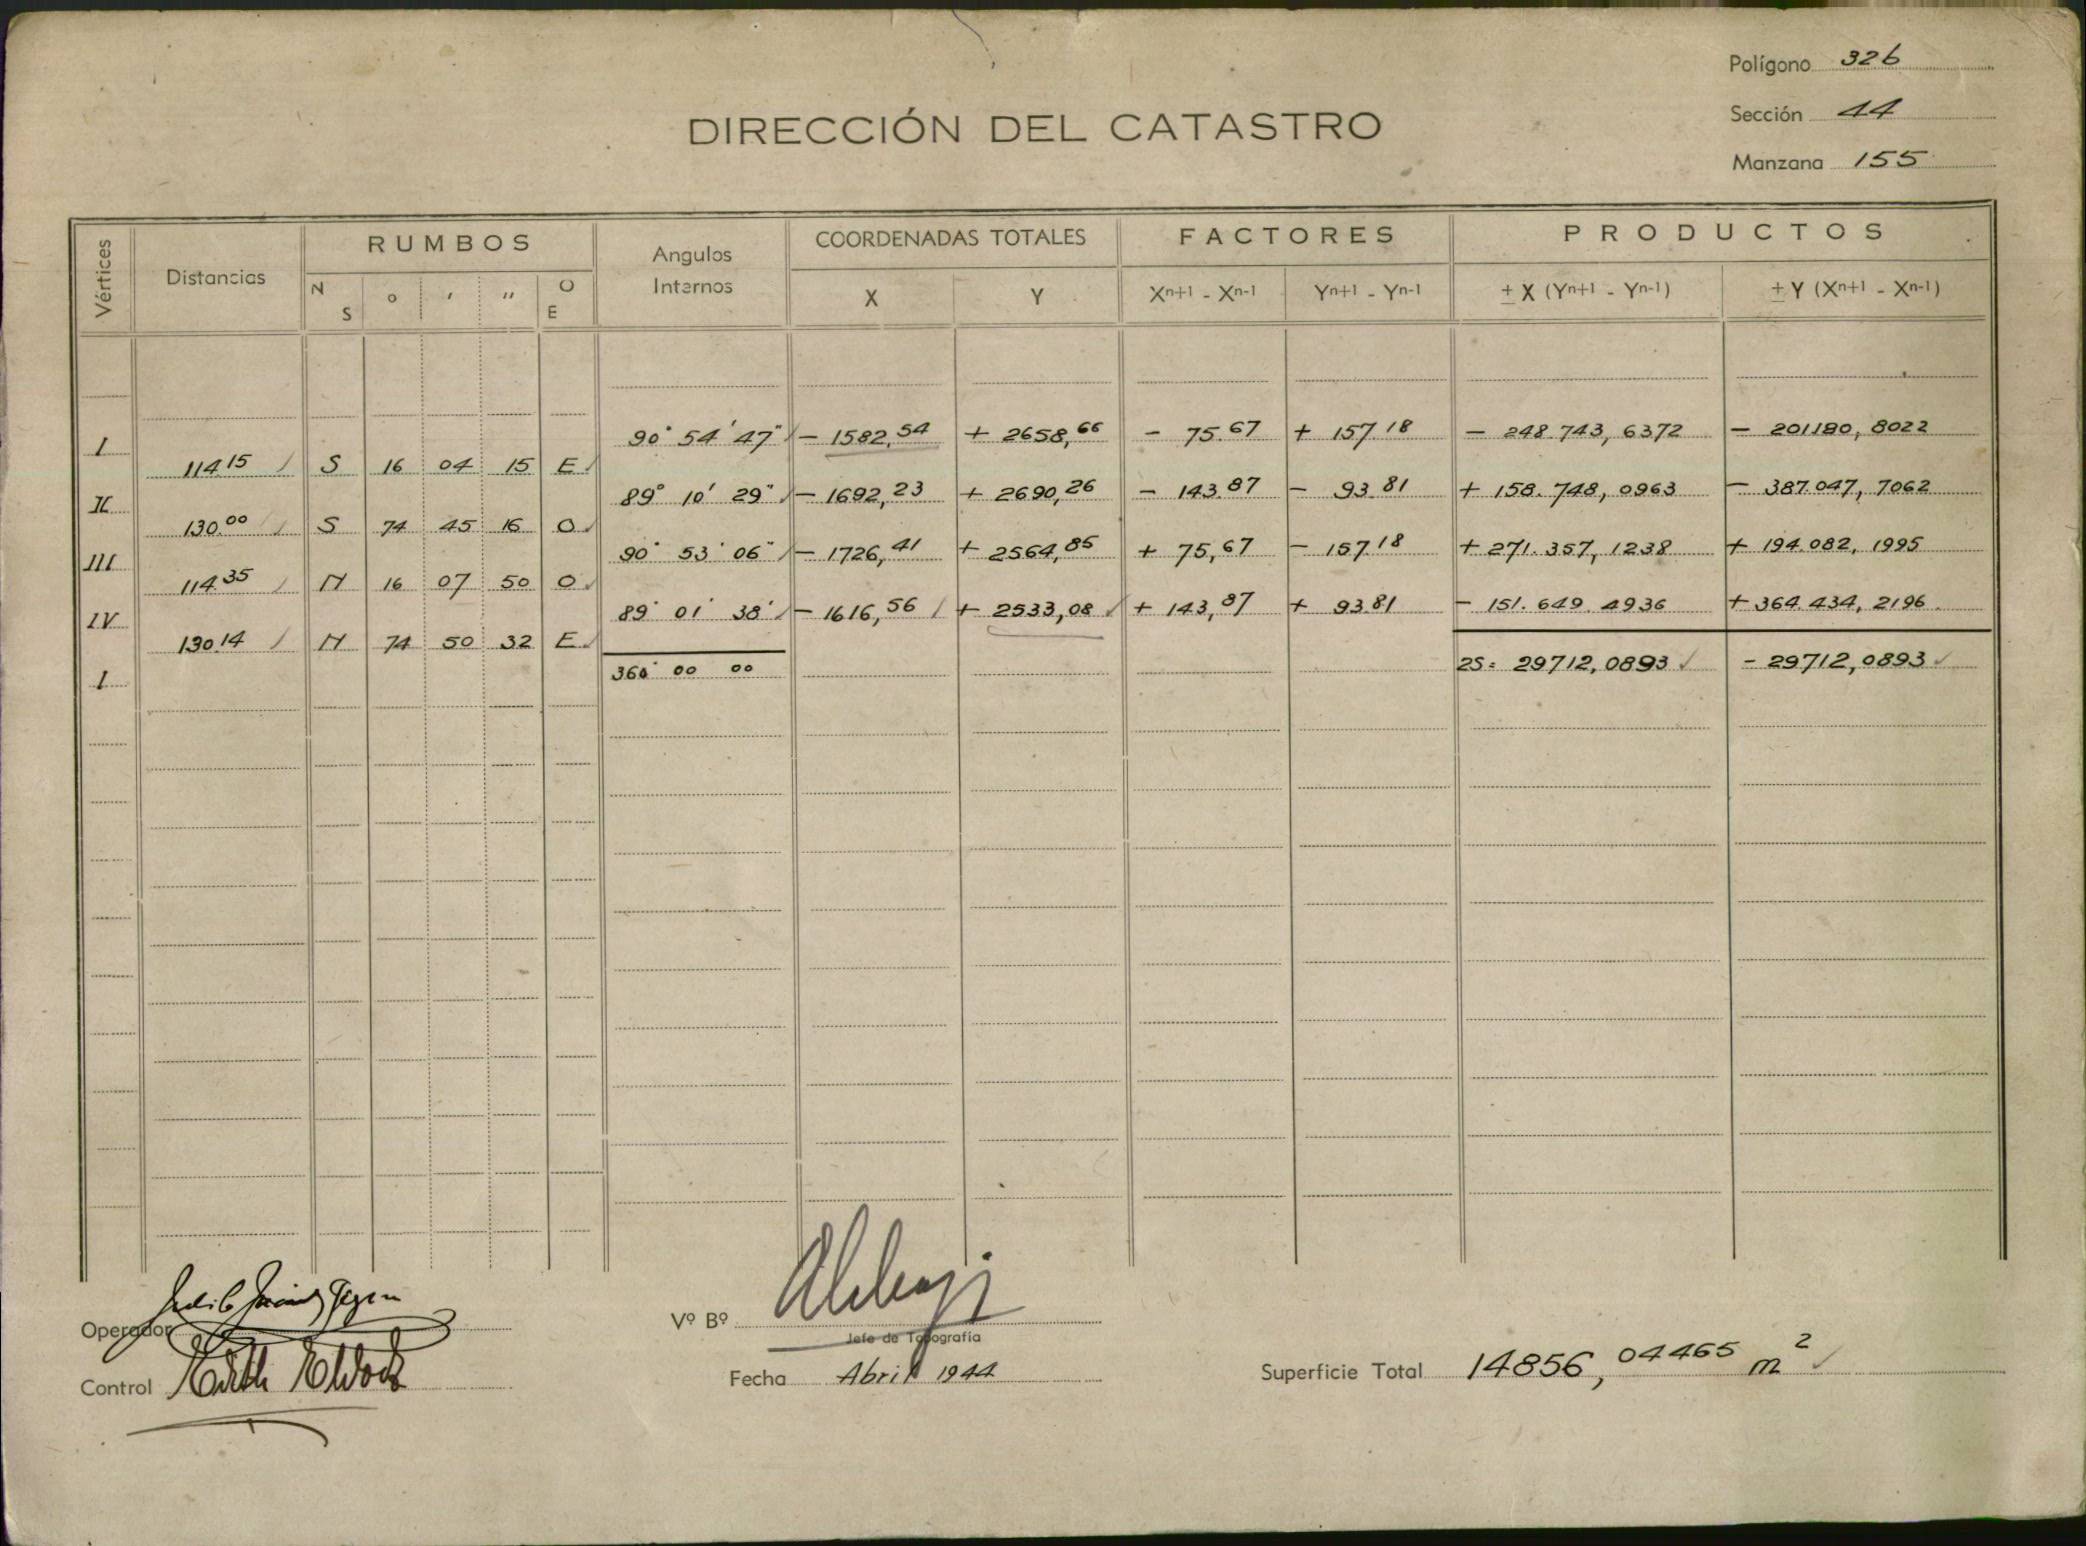 Polígono 326
DIRECCIÓN DEL CATASTRO
Sección 44
Manzana 155
Vértices Distancias RUMBOS Angulos Internos COORDENADAS TOTALES FACTORES PRODUCTOS
N S ° ' " O E X Y Xn+1 - Xn-1 Yn+1 - Yn-1 ± X (Yn+1 - Yn-1) ± Y (Xn+1 - Xn-1)
I 90° 54' 47" - 1582,54 + 2658,66 - 75.67 + 157.18 - 248.743,6372 - 201180,8022
114.15 S 16 04 15 E
II 89° 10' 29" - 1692,23 + 2690,26 - 143.87 - 93.81 + 158.748,0963 - 387.047,7062
130.00 S 74 45 16 O
III 90° 53' 06" - 1726,41 + 2564,85 + 75,67 - 157.18 + 271.357,1238 + 194.082,1995
114.35 N 16 07 50 O
IV 89° 01' 38' - 1616,56 + 2533,08 + 143,87 + 93.81 - 151.649.4936 + 364.434,2196
130.14 N 74 50 32 E
I 360° 00 00 2S= 29712,0893 - 29712,0893
Operador
Vº Bº
Jefe de Topografía
Control
Fecha Abril 1944
Superficie Total 14856,04465 m²